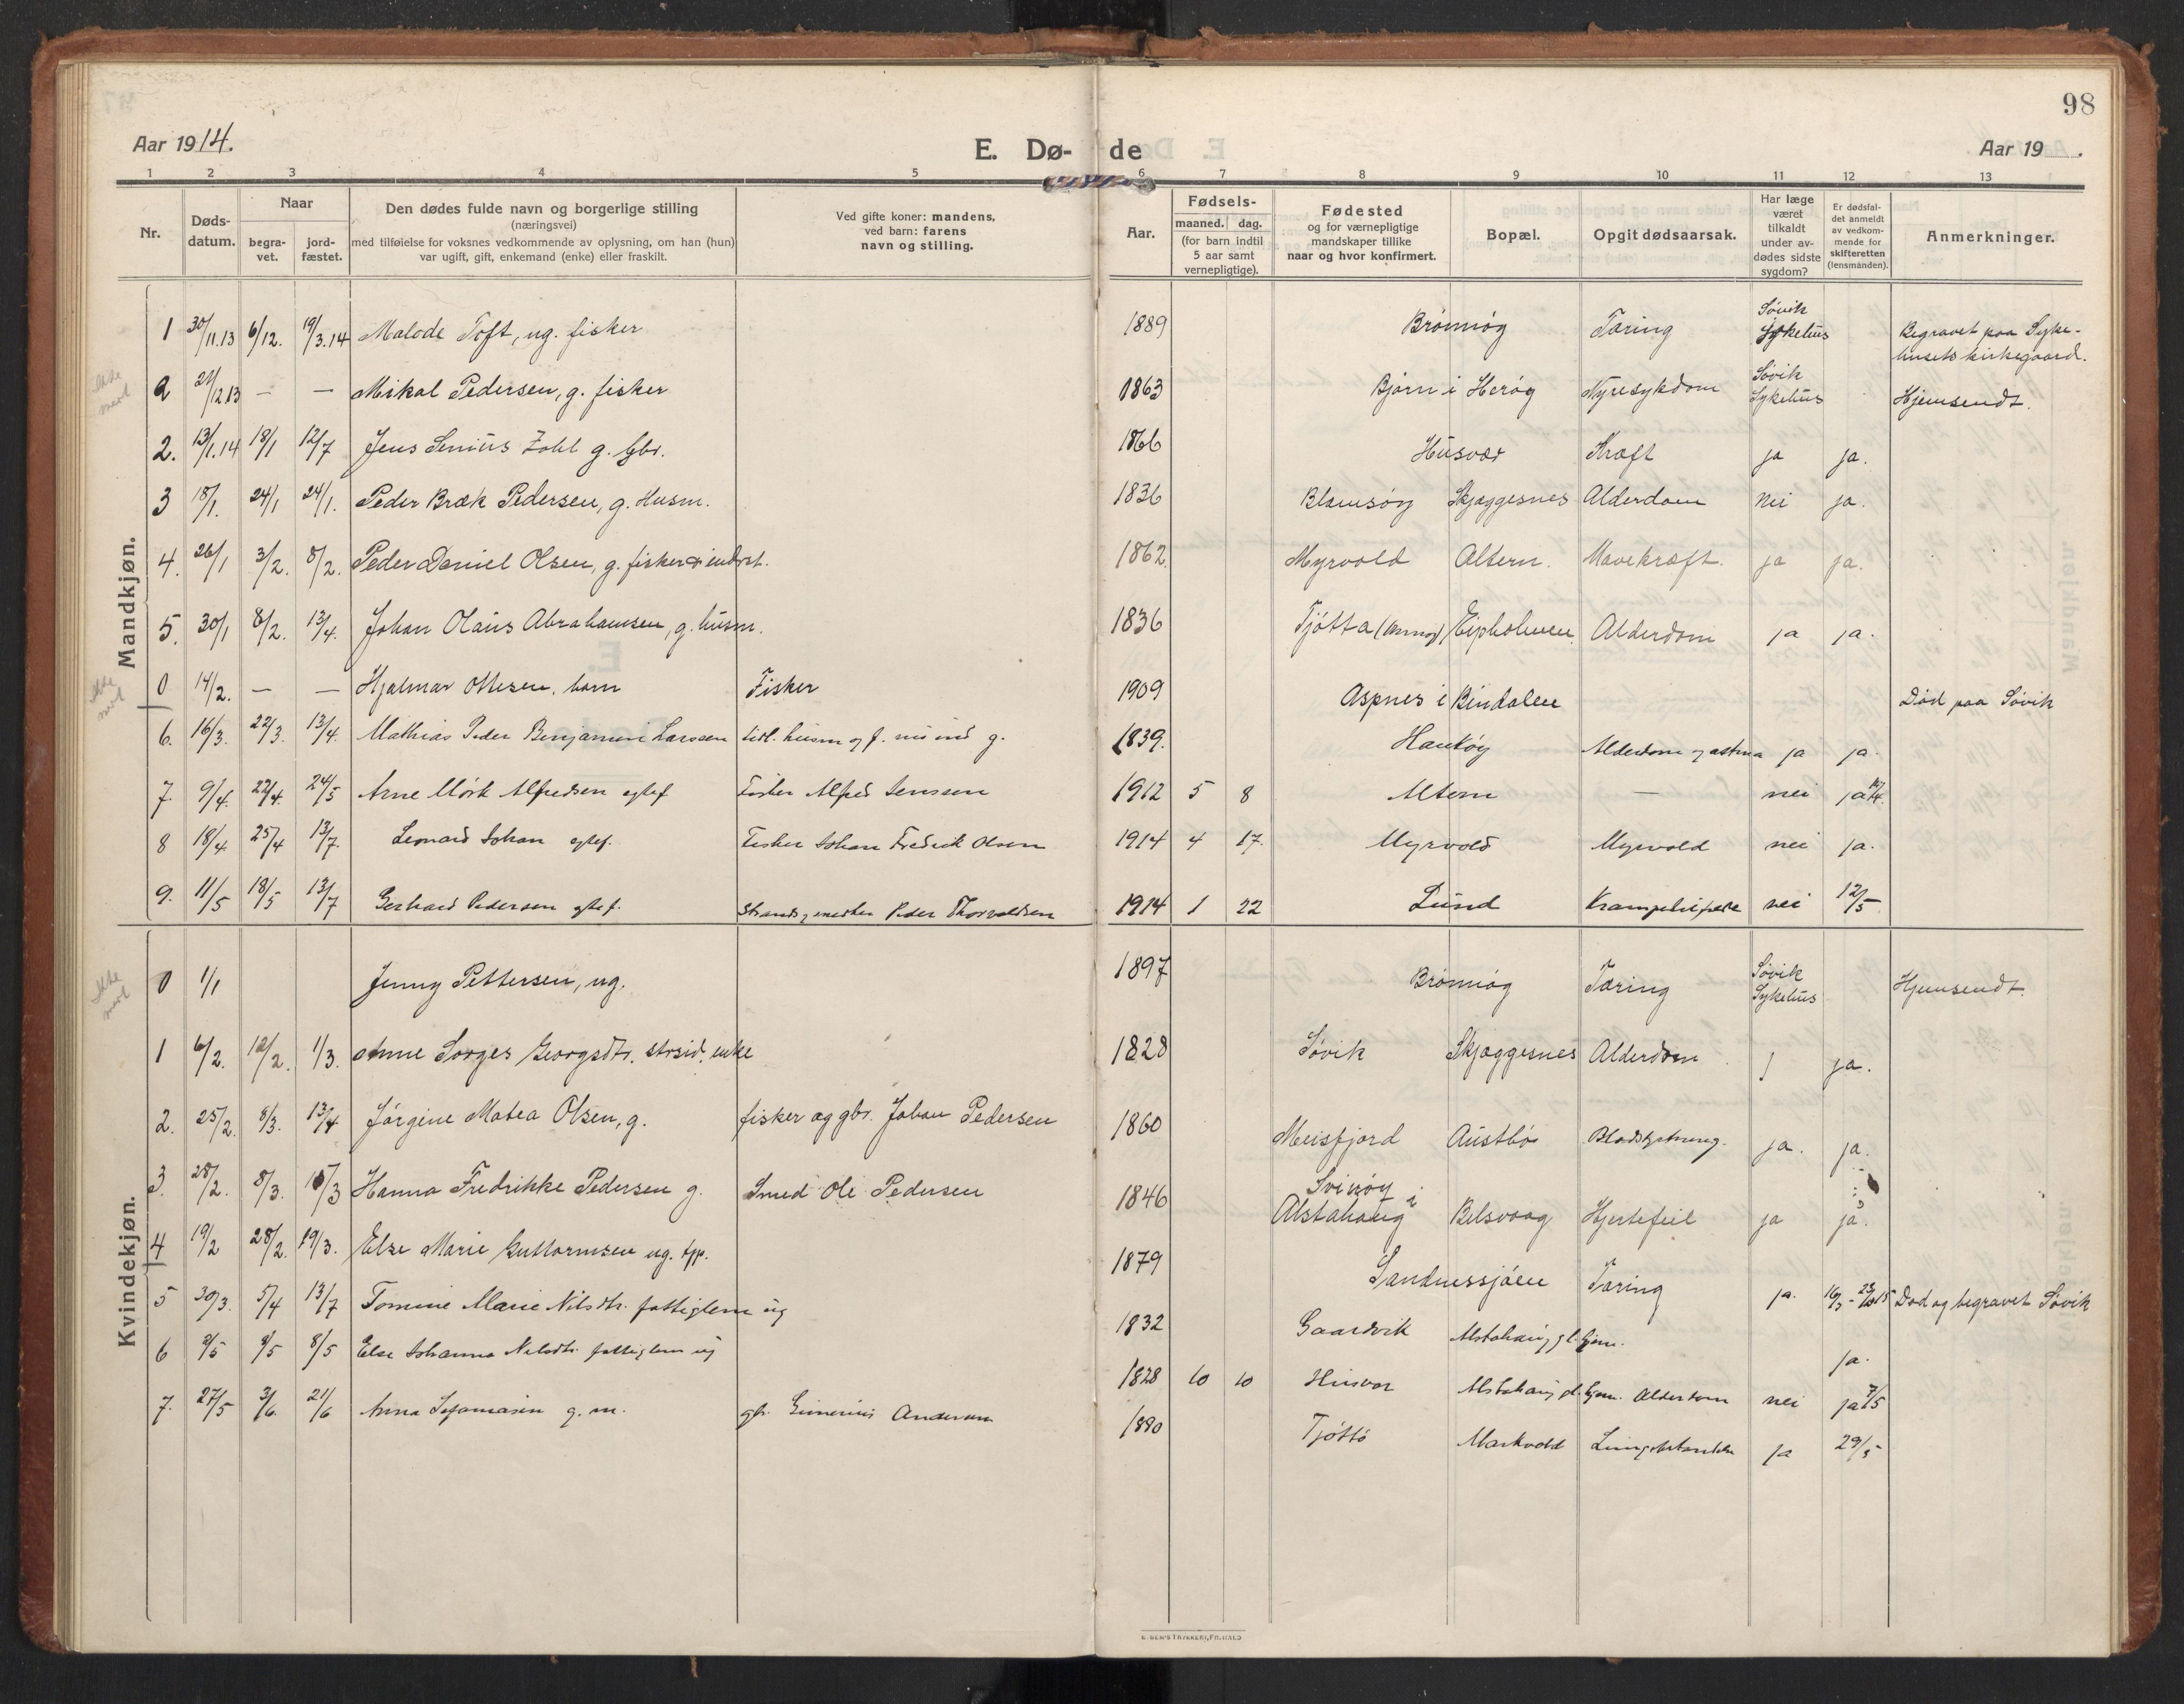 98
Aar 1914.
E. Dø- de
Aar 19 .
1 2 3 4 5 6 7 8 9 10 11 12 13
Nr.
Døds-
datum.
Naar
begra-
vet.
jord-
fæstet.
Den dødes fulde navn og borgerlige stilling
(næringsvei)
med tilføielse for voksnes vedkommende av oplysning, om han (hun)
var ugift, gift, enkemand (enke) eller fraskilt.
Ved gifte koner: mandens,
ved barn: farens
navn og stilling.
Aar.
Fødsels-
maaned. dag.
(for barn indtil
5 aar samt
vernepligtige).
Fødested
og for værnepligtige
mandskaper tillike
naar og hvor konfirmert.
Bopæl.
Opgit dødsaarsak.
Har læge
været
tilkaldt
under av-
dødes sidste
sygdom?
Er dødsfal-
det anmeldt
av vedkom-
mende for
skifteretten
(lensmanden).
Anmerkninger.
Mandkjøn.
1 30/11.13 6/12. 19/3.14 Malode Toft, ug. fisker 1889 Brønnøy Tæring Søvik Sykehus Begravet paa Syke-
husets kirkegaard.
ikke med 21/12 13 — — Mikal Pedersen, g. fisker 1863 Bjørn i Herøy Nyresykdom Søvik Sykehus Hjemsendt.
2. 13/1.14 18/1 12/7 Jens Senius Zahl g. gbr. 1866 Husvær Kræft ja ja.
3 18/1. 24/1 24/1. Peder Bræk Pedersen, g. Husm. 1836 Blomsøy Skjæggesnes Alderdom Nei ja.
4. 26/1 3/2. 8/2. Peder Daniel Olsen, g. fisker 1862. Myrvold Altern. Mavekræft. ja ja.
5. 30/1 8/2. 13/4. Johan Olaus Abrahamsen, g. husm. 1836 Tjøtta Alderdom ja ja.
ikke med 0 14/2. — — Hjalmar Ottesen, barn Fisker 1909 Aspnes i Bindalen Død paa Søvik
6. 16/3. 22/3. 13/4. Mathias Peder Benjamin Larssen tidl. husm og f. nu ind g. 1839. Haukøy Alderdom og astma ja ja.
7. 9/4. 22/4. 24/5 Arne Mørk Alfredsen egtef Fisker Alfred Jenssen 1912 5 8 Altern — nei ja
8 18/4 25/4 13/7. Leonard Johan egtef. Fisker Johan Fredrik Olsen 1914 4 17. Myrvold Myrvold nei ja.
9. 11/5 18/5 13/7 Gerhard Pedersen egtef. Peder Thorvaldsen 1914 1 22 Lund nei 12/5
Kvindekjøn.
ikke med 0 1/1 Jenny Pettersen, ug. 1897 Brønnøy Tæring Søvik Sykehus Hjemsendt.
1 6/2. 12/2. 1/3. Anne Sorges Georgsdtr. strsid. enke 1828 Søvik Skjæggesnes Alderdom ja.
2. 25/2. 8/3. 13/4 Jørgine Matea Olsen, g. fisker og gbr. Johan Pedersen 1860 Meisfjord Austbø Blodstyrtning. ja. ja.
3. 28/2. 8/3. Hanna Fredrikke Pedersen g. Smed Ole Pedersen 1846 Svinøy i
Alstahaug Belsvaag Hjertefeil ja ja.
4 19/2 28/2. 19/3. Else Marie Guttormsen ug. 1879 Sandnessjøen Tæring ja. Død og begravet Søvik
5 30/3. 5/4 13/7 Tomine Marie Nilsdtr. fattiglem ug 1832 Gaardvik Alstahaug gl. hjem. ja.
6 2/5 8/5 8/5 Else Johanna Nilsdtr. fattiglem ug 1828 10 10 Husvær Alstahaug gl. hjem. Alderdom nei ja 7/5
7. 27/5 3/6. 21/6 Anna g. m. gbr. Andersen 1880 Tjøttø Markvold ja 29/5